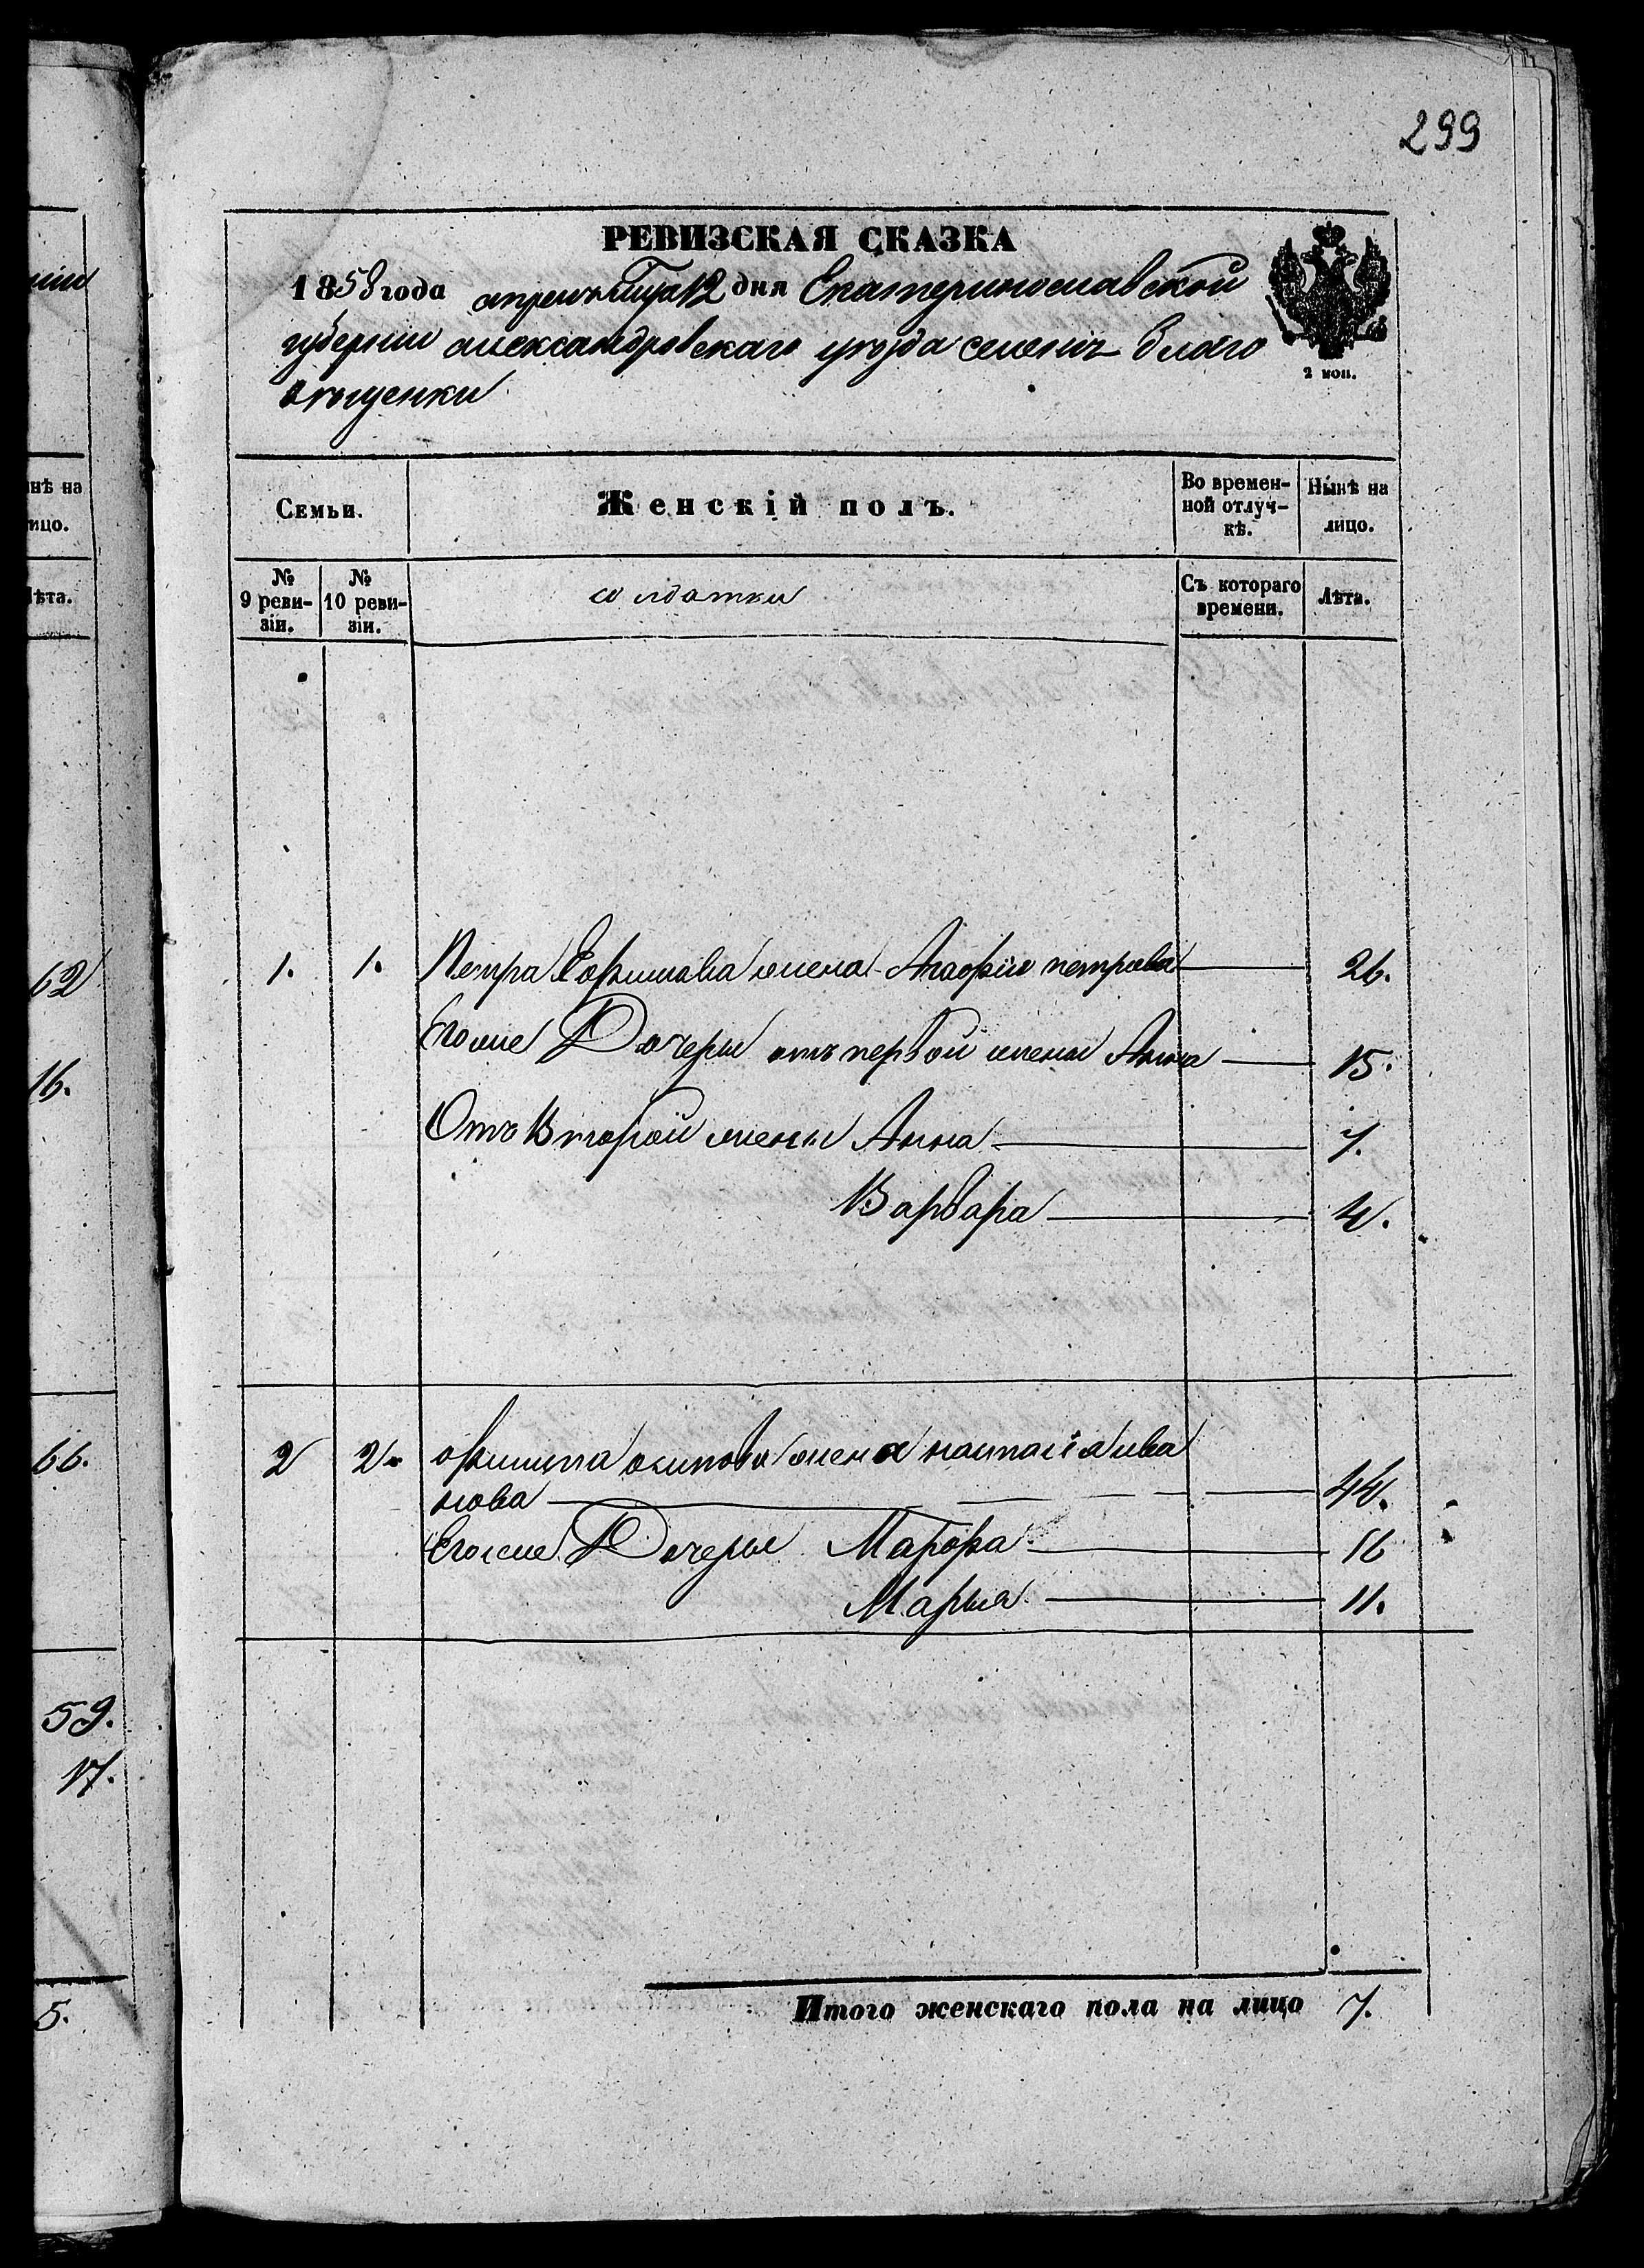 299
РЕВИЗСКАЯ СКАЗКА
1858 года апреля 12 дня Екатеринославской
губернии александровскаго уезда селения благо
вещенки
2 коп.
Семьи.
Женскій полъ.
Во времен-
ной отлуч-
кѣ.
Нынѣ на
лицо.
№
9 реви-
зіи.
№
10 реви-
зіи.
солдатки
Съ котораго
времени.
Лѣта.
1. 1. Петра Ефимова жена Агафия петрова 26.
Егоже Дочери отъ первой жены Анна 15.
Отъ Второй жены Анна 7.
Варвара 4.
2 2. осипова жена настасія ива
нова 44.
Егоже Дочери Марфа 16
Марья 11.
Итого женскаго пола на лицо 7.
нѣ на
ицо.
ѣта.
62
16.
66.
59.
17.
5.